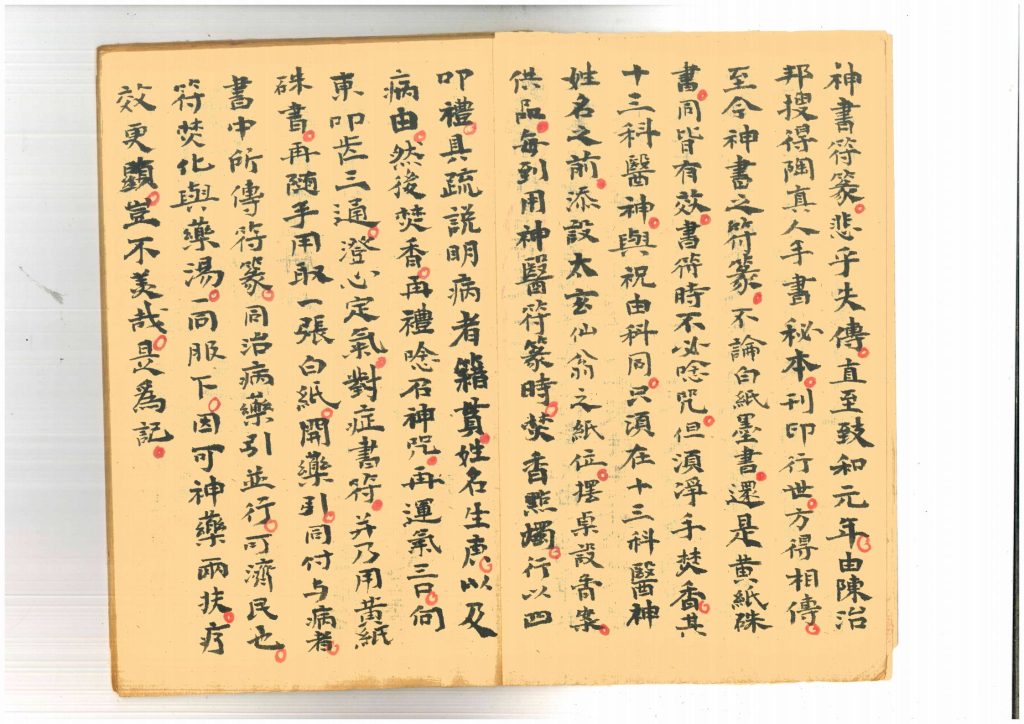 神書符篆。悲乎失傳。直至致和元年。由陳治
邦搜得陶真人手書秘本。刊印行世。方得相傳。
至今神書之符篆。不論白紙墨書。還是黃紙硃
書。同皆有效。書符時不必唸咒。但須淨手焚香。其
十三科醫神。與祝由科同。只須在十三科醫神
姓名之前。添設太玄仙翁之紙位。擺桌設香案。
供品。每到用神醫符篆時。焚香點燭。行以四
叩禮。具疏説明病者籍貫。姓名生庚。以及
病由。然後焚香。再禮唸召神咒。再運氣三口。向
東叩齿三通。澄心定氣。對症書符。并乃用黃紙
硃書。再随手用取一張白紙。開藥引。同付与病者。
書中所傳符篆。同治病藥引並行。可濟民也。
符焚化與藥湯。一同服下。因可神藥兩扶。疗
效更顯。豈不美哉。是為記。